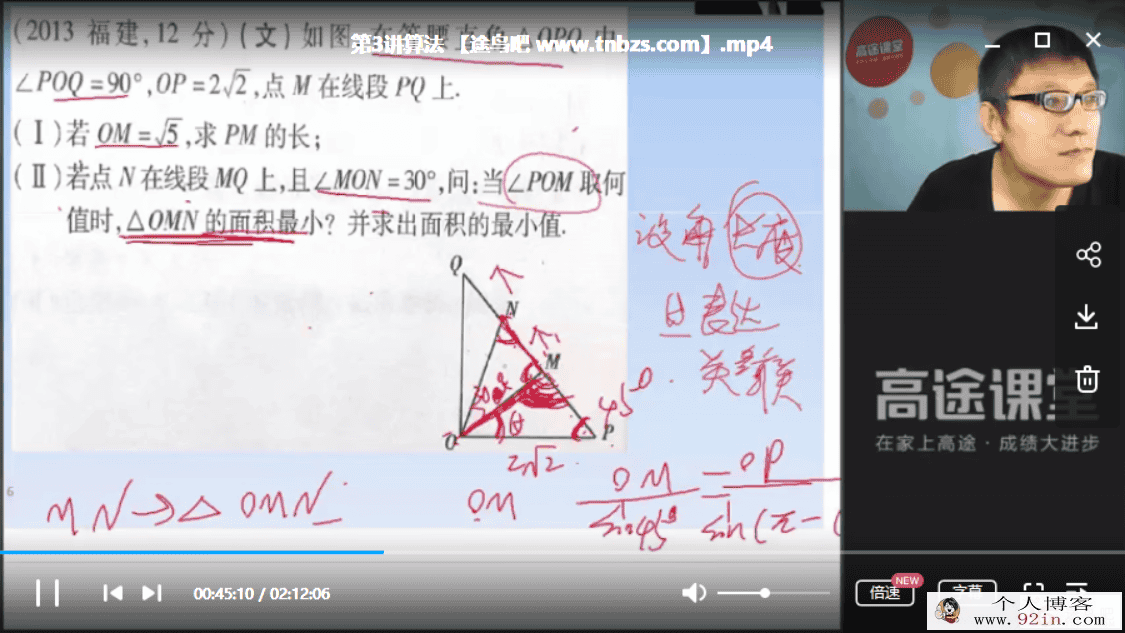 (2013 福建,12 分)(文)如图
第3讲算法 【途鸟吧 www.tnbzs.com】.mp4
∠POQ=90°,OP=2√2,点 M 在线段 PQ 上.
(Ⅰ)若 OM=√5,求 PM 的长;
(Ⅱ)若点 N 在线段 MQ 上,且∠MON=30°,问:当∠POM 取何
值时,△OMN 的面积最小? 并求出面积的最小值.
设角 长度
表达
Q
N
M
30°
θ
45°
O
P
2√2
MN→△OMN
OM
OM/sin45° = OP/sin(π-(
6
高途课堂
高途课堂
在家上高途·成绩大进步
00:45:10 / 02:12:06
倍速
NEW
字幕
个人博客
www.92in.com